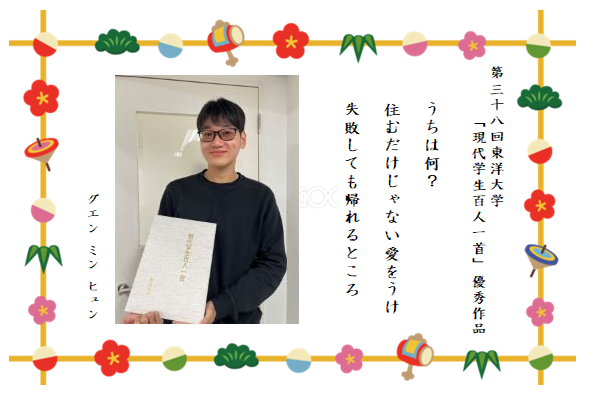 第三十八回東洋大学
「現代学生百人一首」優秀作品
うちは何？
住むだけじゃない愛をうけ
失敗しても帰れるところ
グエン ミン ヒュン
現代学生百人一首